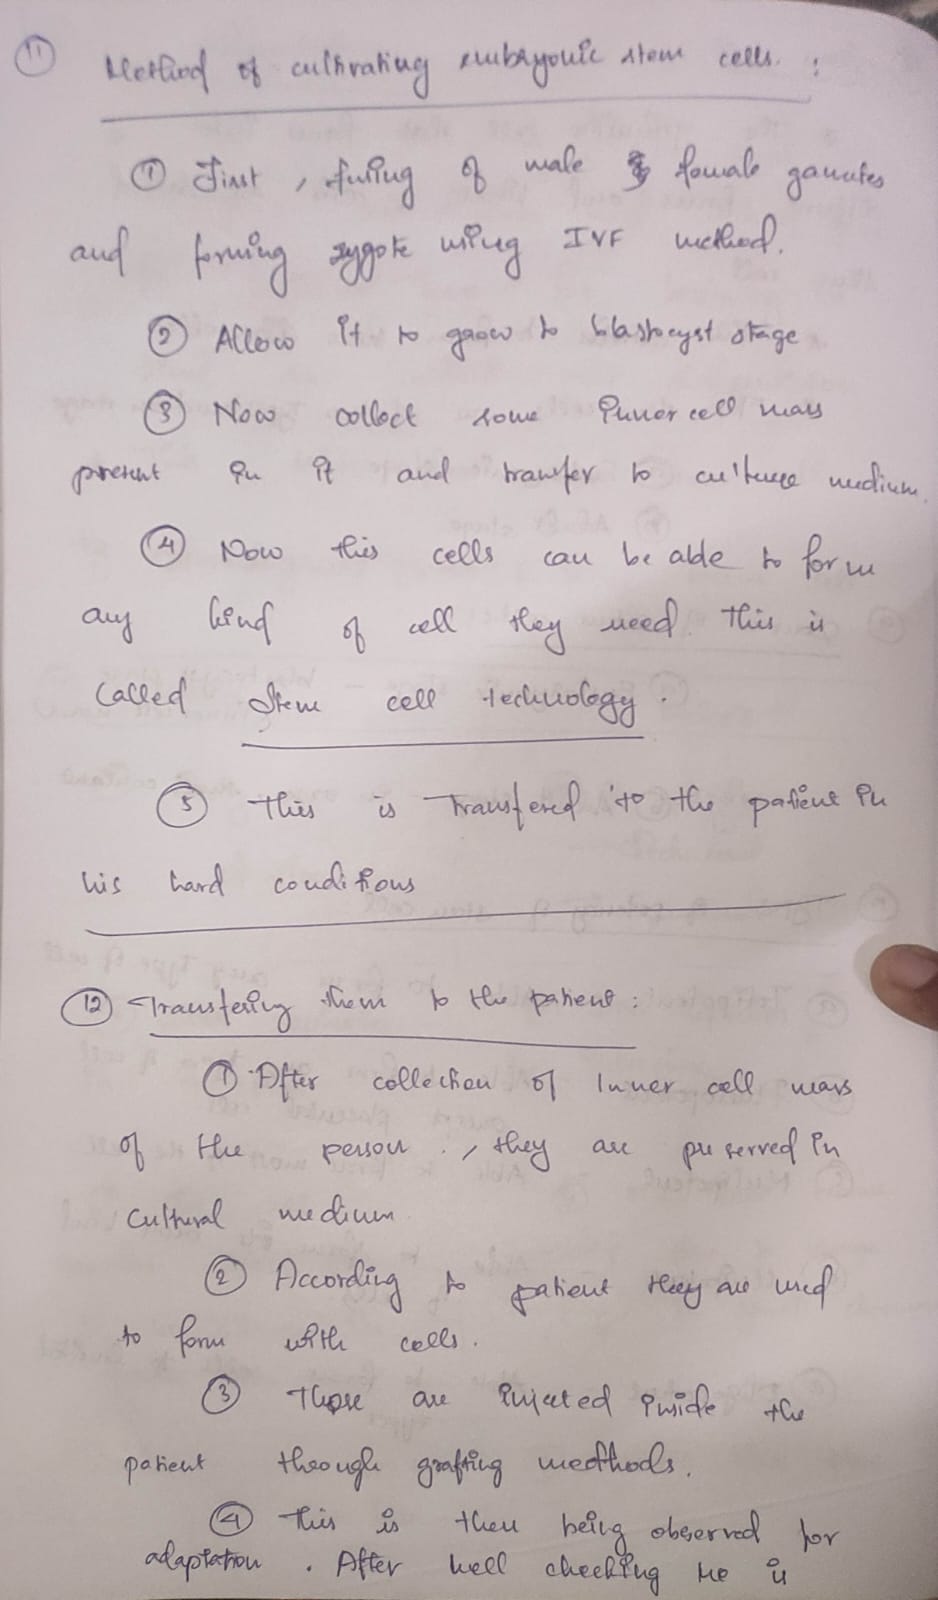 11 Method of cultivating embryonic stem cells. :
① First, fusing of male & female gametes
and forming zygote using IVF method.
② Allow it to grow to blastocyst stage
③ Now collect some inner cell mass
present in it and transfer to culture medium.
④ Now this cells can be able to form
any kind of cell they need. This is
called Stem cell technology.
⑤ This is Transfered to the patient in
his hard conditions
12 Transfering them to the patient :
① After collection of Inner cell mass
of the person, they are preserved in
cultural medium
② According to patient they are used
to form with cells.
③ Those are injected inside the
patient through grafting medthods.
④ This is then being observed for
adaptation. After well checking He is